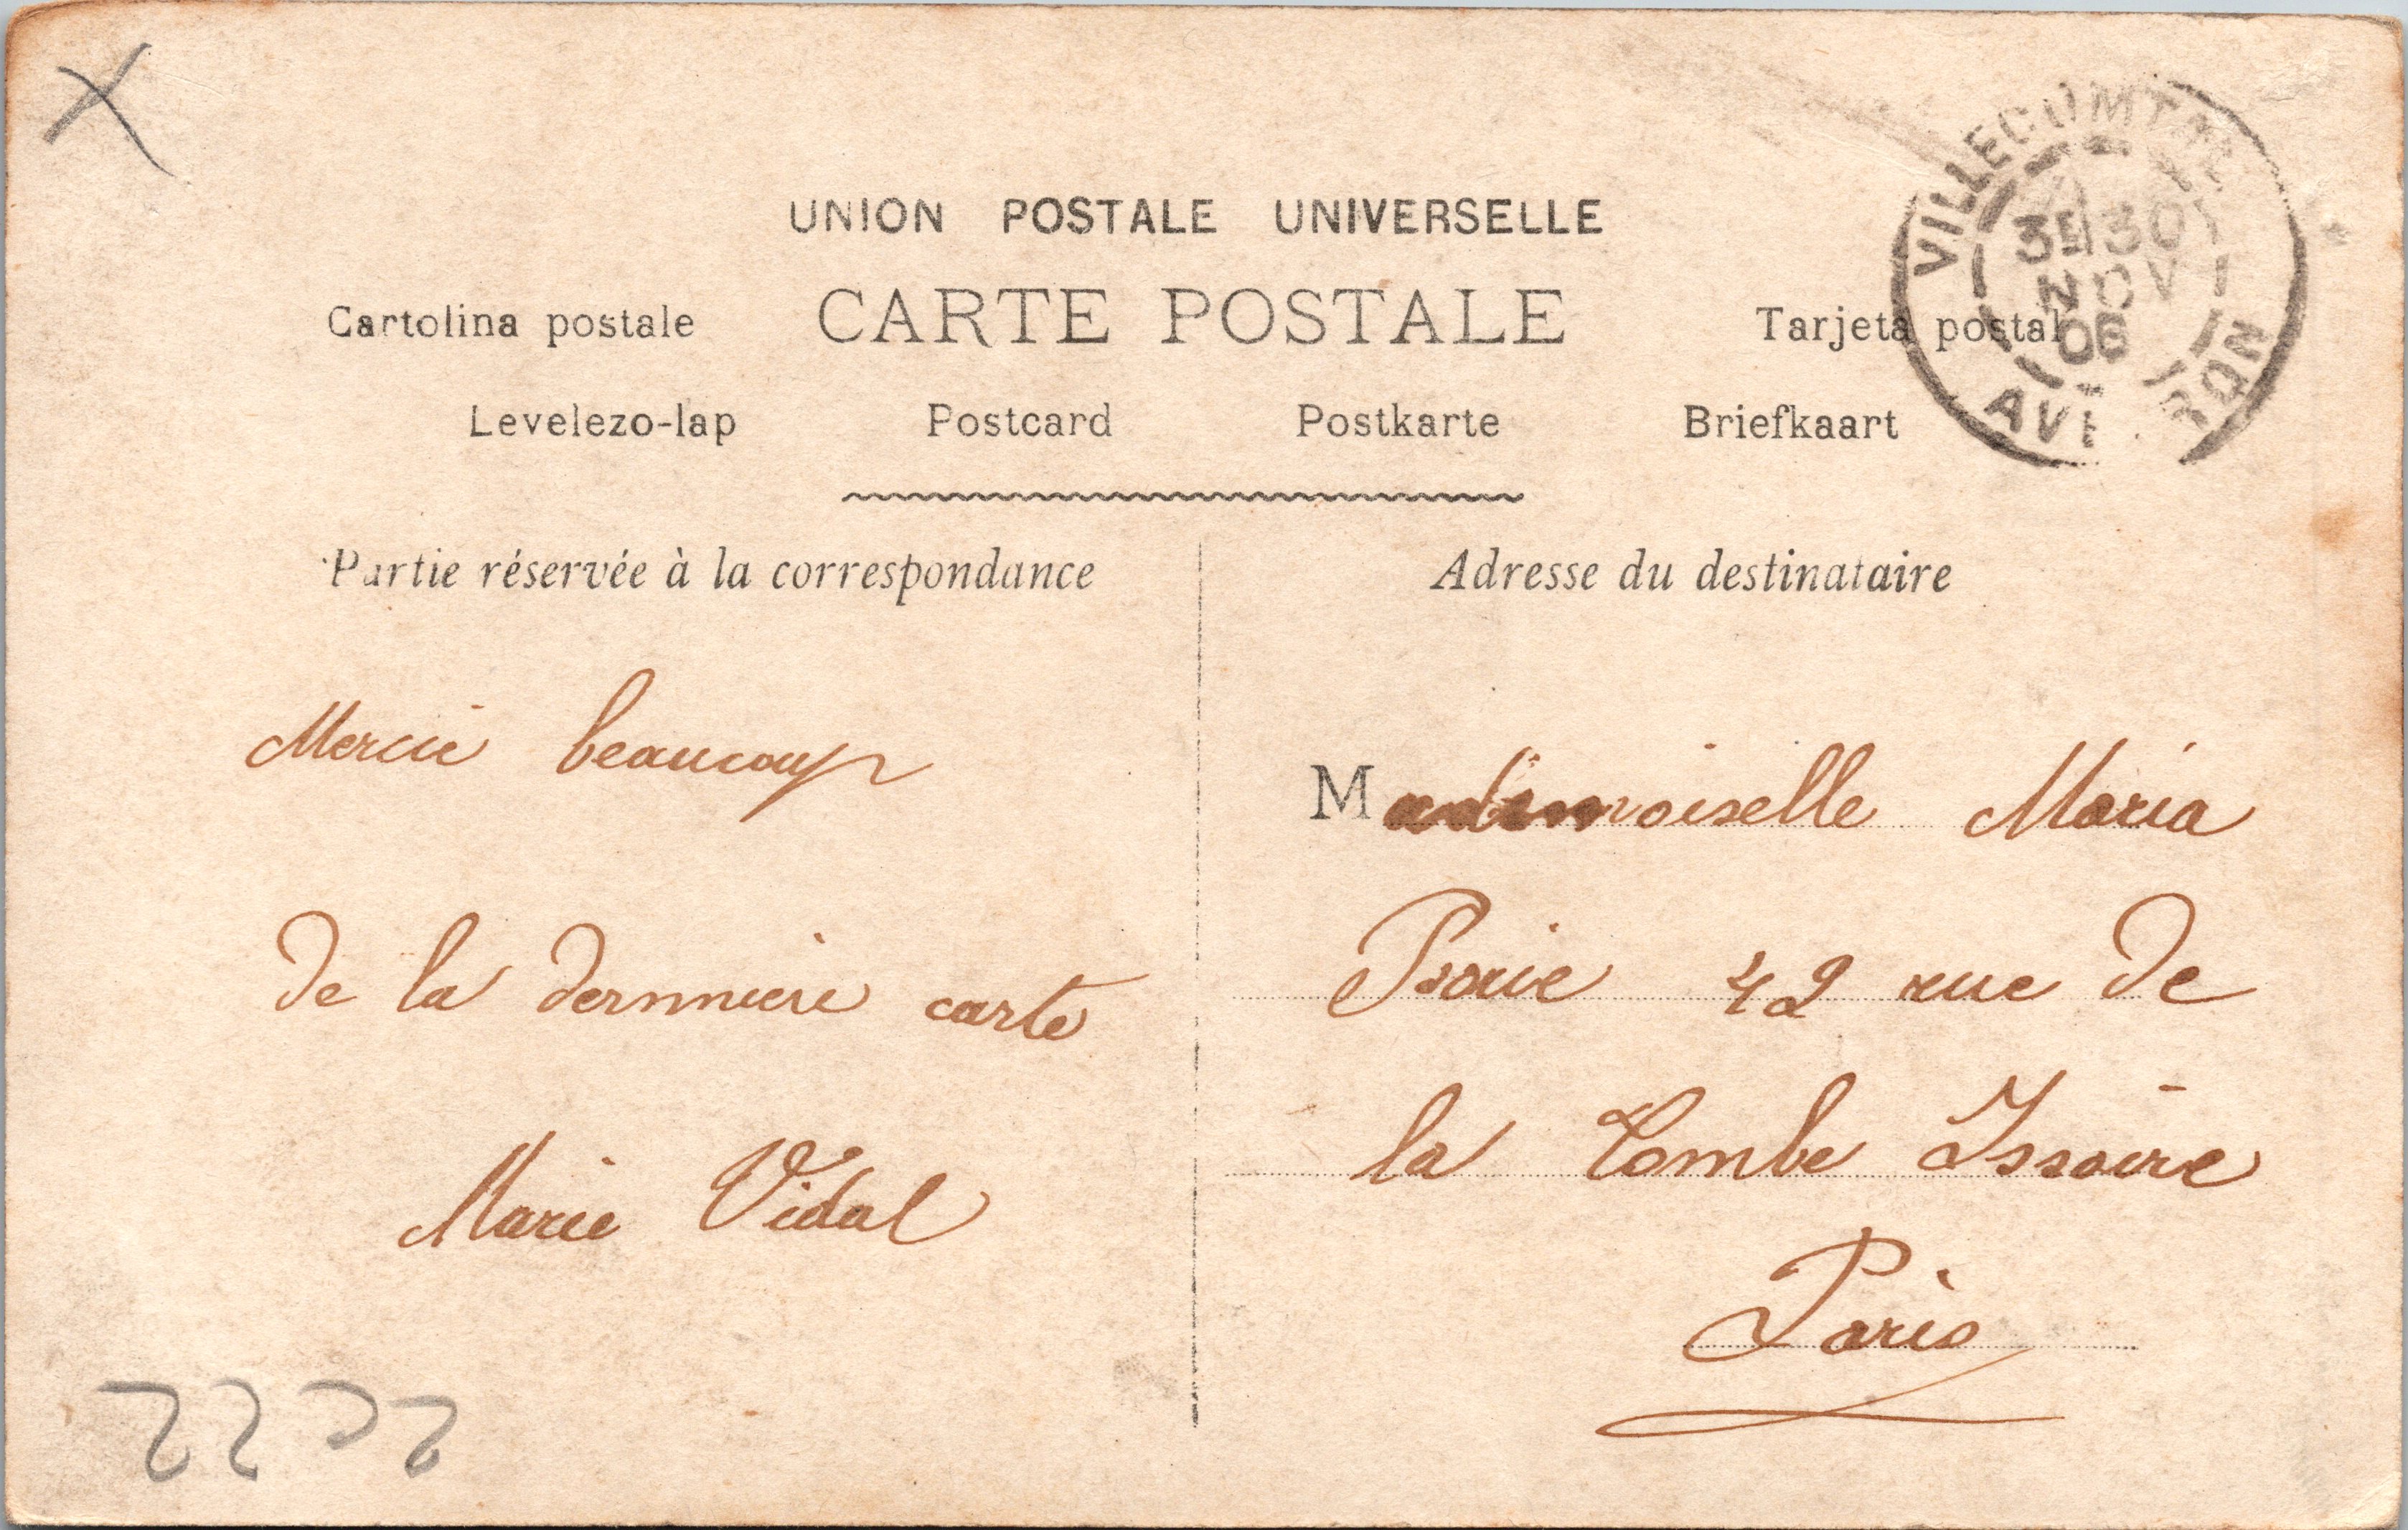 UNION POSTALE UNIVERSELLE
Cartolina postale CARTE POSTALE Tarjeta postal
Levelezo-lap Postcard Postkarte Briefkaart
VILLECOMTAL
3E 30
NOV
06
AVEYRON
Partie réservée à la correspondance
Mercie beaucoup
de la dernniere carte
Marie Vidal
Adresse du destinataire
Mademoiselle Maria
42 rue de
la Tombe Issoire
Paris